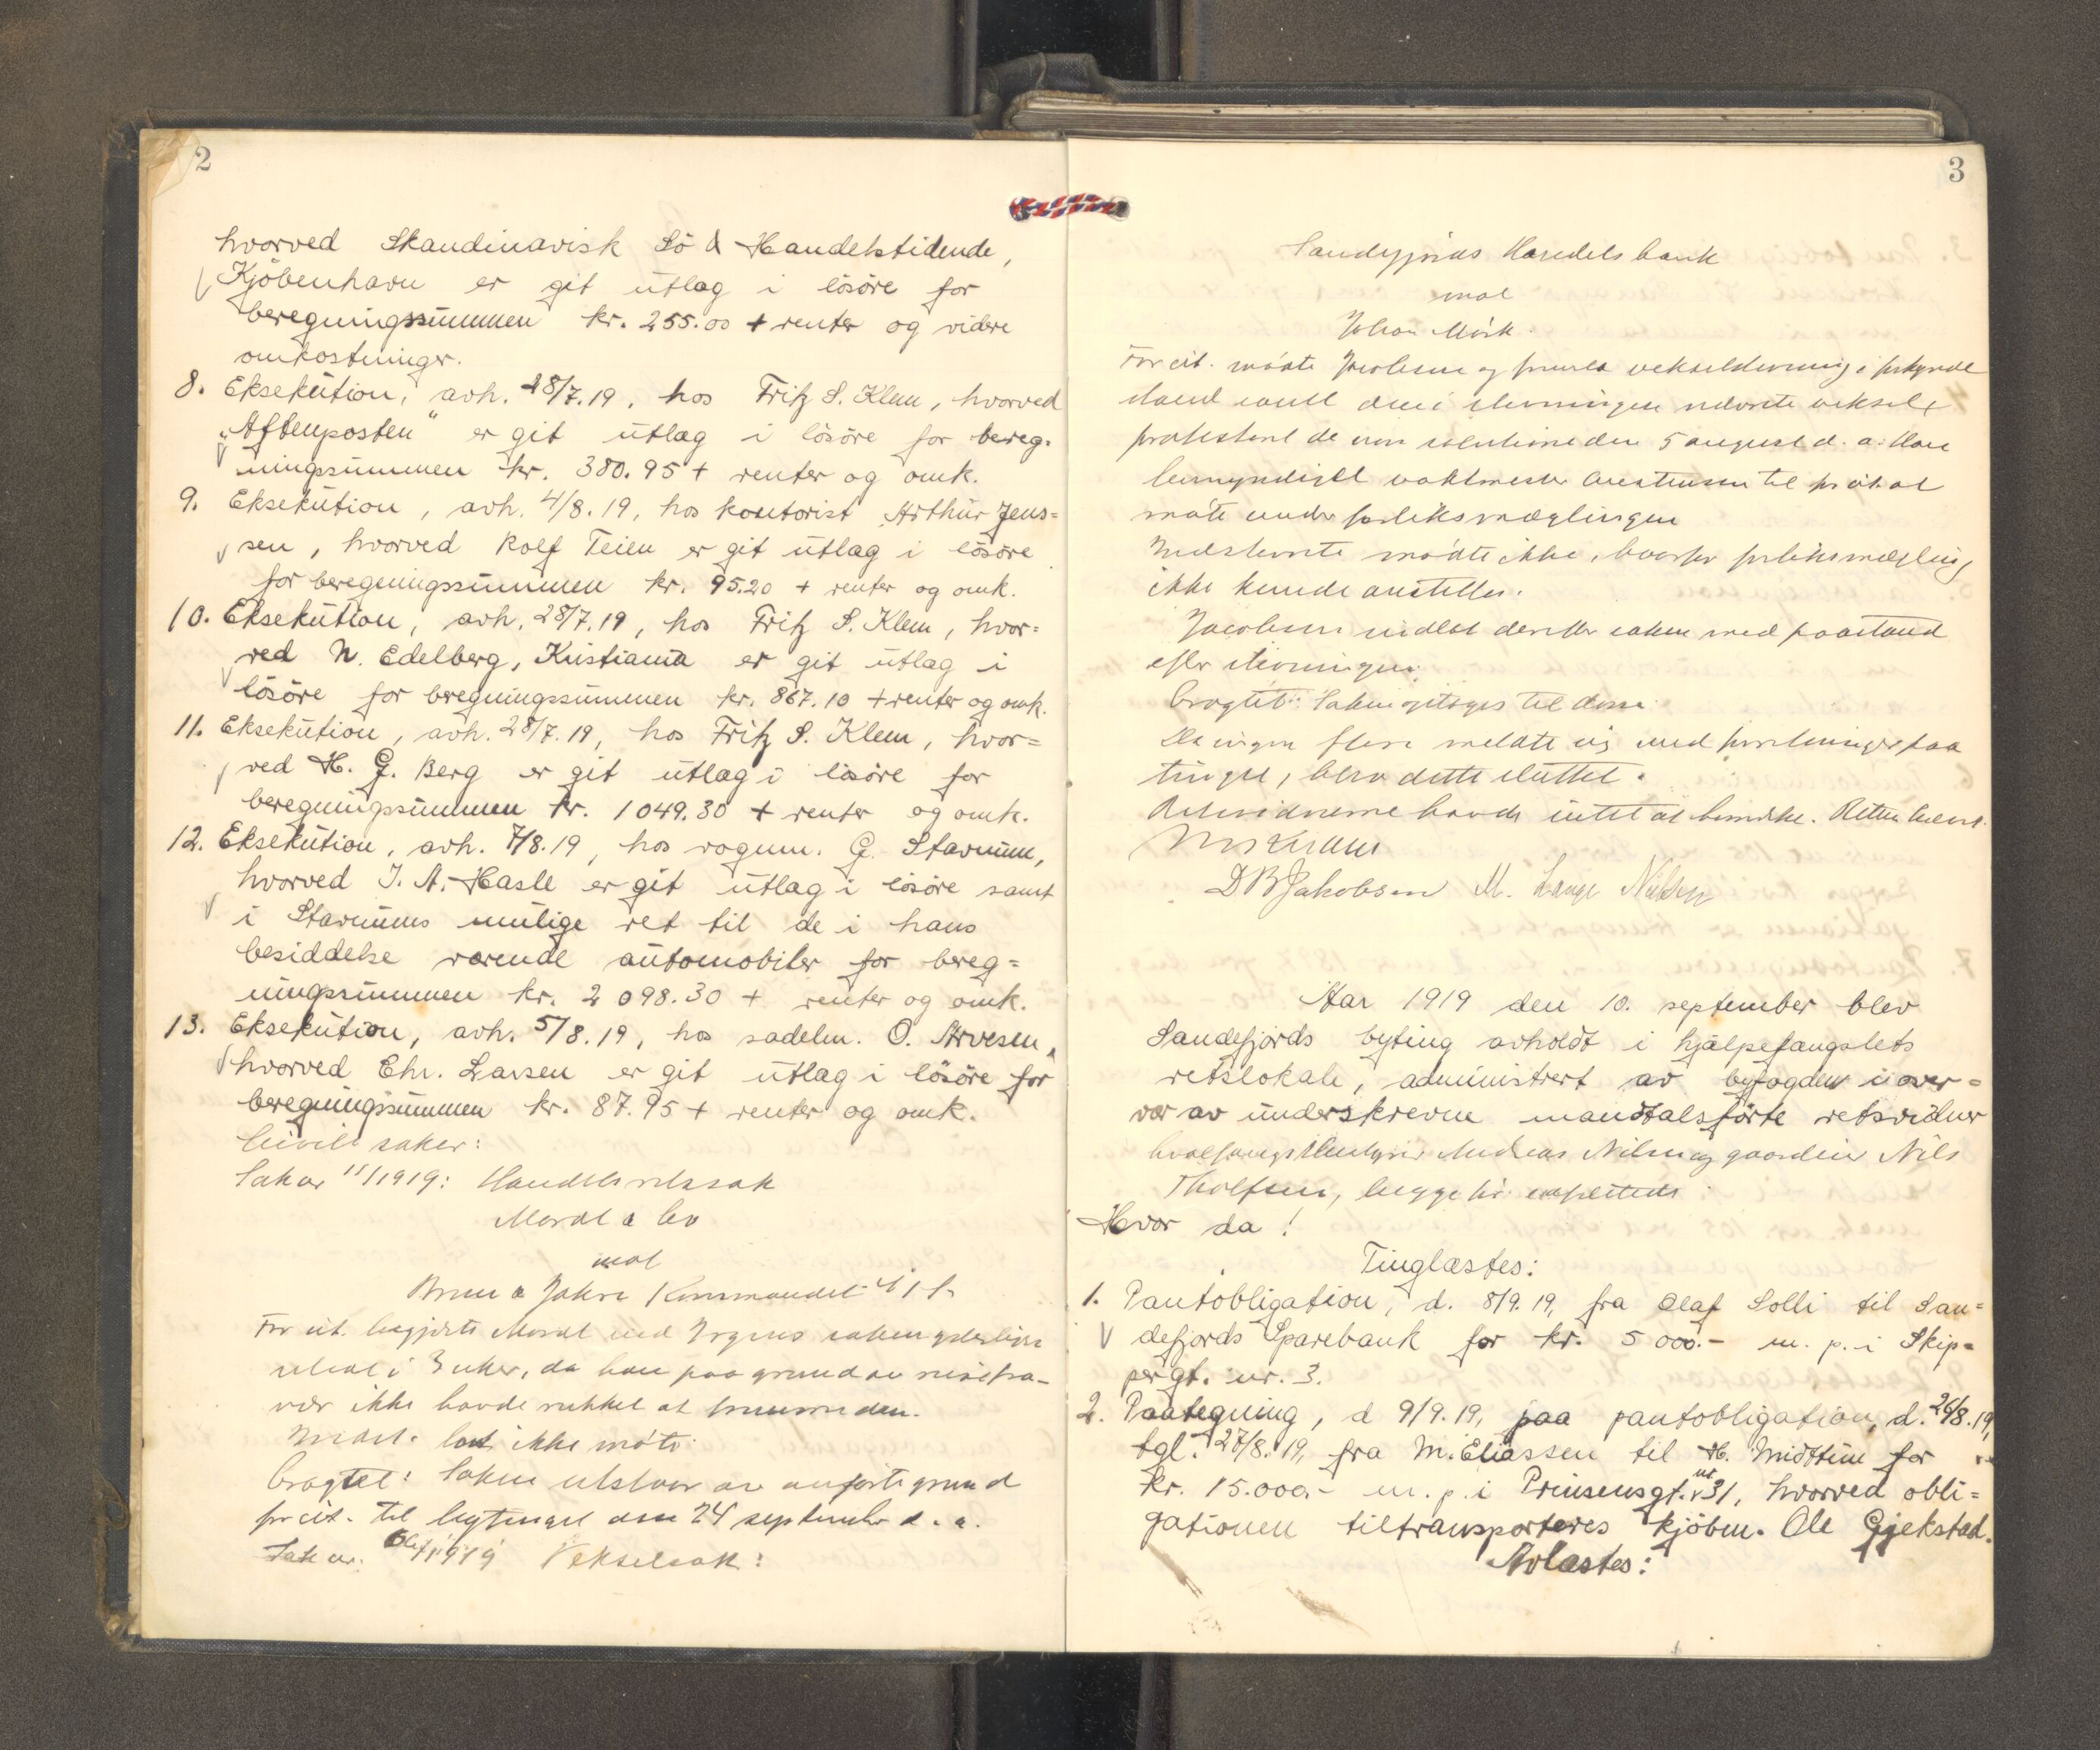 2
hvorved Skandinavisk Sö & Handelstidende,
Kjöbenhavn er git utlæg i lösöre for
beregningssummen kr. 255.00 + renter og videre
omkostninger.
8. Eksekution, avh. 28/7.19, hos Fritz S. Klem, hvorved
"Aftenposten" er git utlæg i lösöre for bereg=
ningssummen kr. 380.95 + renter og omk.
9. Eksekution, avh. 4/8.19, hos kontorist Arthur Jens=
sen, hvorved Rolf Teien er git utlæg i lösöre
for beregningssummen kr. 95.20 + renter og omk.
10. Eksekution, avh. 28/7.19, hos Fritz S. Klem, hvor=
ved N. Edelberg, Kristiania er git utlæg i
lösöre for beregningssummen kr. 867.10 + renter og omk.
11. Eksekution, avh. 28/7.19, hos Fritz S. Klem, hvor=
ved H. G. Berg er git utlæg i lösöre for
beregningssummen kr. 1049.30 + renter og omk.
12. Eksekution, avh. 7/8.19, hos vognm. G. Stavnum,
hvorved J. A. Hasle er git utlæg i lösöre samt
i Stavnums mulige ret til de i hans
besiddelse værende automobiler for bereg=
ningssummen kr. 2098.30 + renter og omk.
13. Eksekution, avh. 5/8.19, hos sadelm. O. Arvesen,
hvorved Chr. Larsen er git utlæg i lösöre for
beregningssummen kr. 87.95 + renter og omk.
Civile saker:
Sak nr 11/1919: Handelsretssak
mot
For cit. begjærte ved saken yderligere
utsat i 3 uker, da han paa grund av reisefra-
vær ikke havde rukket at
Indst. lot ikke møte.
Eragtet: Saken utstaar av anførte grund
for cit. til bytinget den 24 september d. a.
Sak nr. /1919 Vekselsak:
3
Sandefjords Handelsbank
mot
Johan Mörk.
For cit. møtte Jacobsen og vekselstevning i forkyndt
stand samt den i stevningen nævnte veksel
protestert de non solutione den 5 august d. a. Han
bemyndiget vaktmester til for cit. at
møte under forliksmæglingen
Indstevnte mødte ikke, hvorfor forliksmægling
ikke kunde anstilles.
Jacobsen indlot derefter saken med paastand
efter stevningen.
Eragtet: Saken optages til dom.
Da ingen flere meldte sig med forretninger paa
tinget, blev dette sluttet.
Retsvidnerne havde intet at bemerke. Retten hævet.
D B Jakobsen M. Lange Nilsen
Aar 1919 den 10. september blev
Sandefjords byting avholdt i hjælpefængslets
retslokale, administrert av byfogden i over=
vær av underskrevne mandtalsförte retsvidner
Andreas Nilsen og Nils
Tholfsen, begge for
Hvor da!
Tinglæstes:
1. Pantobligation, d. 8/9.19, fra Olaf Solli til San=
defjords Sparebank for kr. 5000.- m. p. i Skip=
pergt. nr. 3.
2. Paategning, d 9/9.19, paa pantobligation, d. 26/8.19,
tgl. 27/8.19, fra M. Eliassen til H. Midttun for
kr. 15.000.- m. p. i Prinsensgt. nr 31, hvorved obli=
gationen tiltransporteres kjöbm. Ole Gjekstad.
Avlæstes: